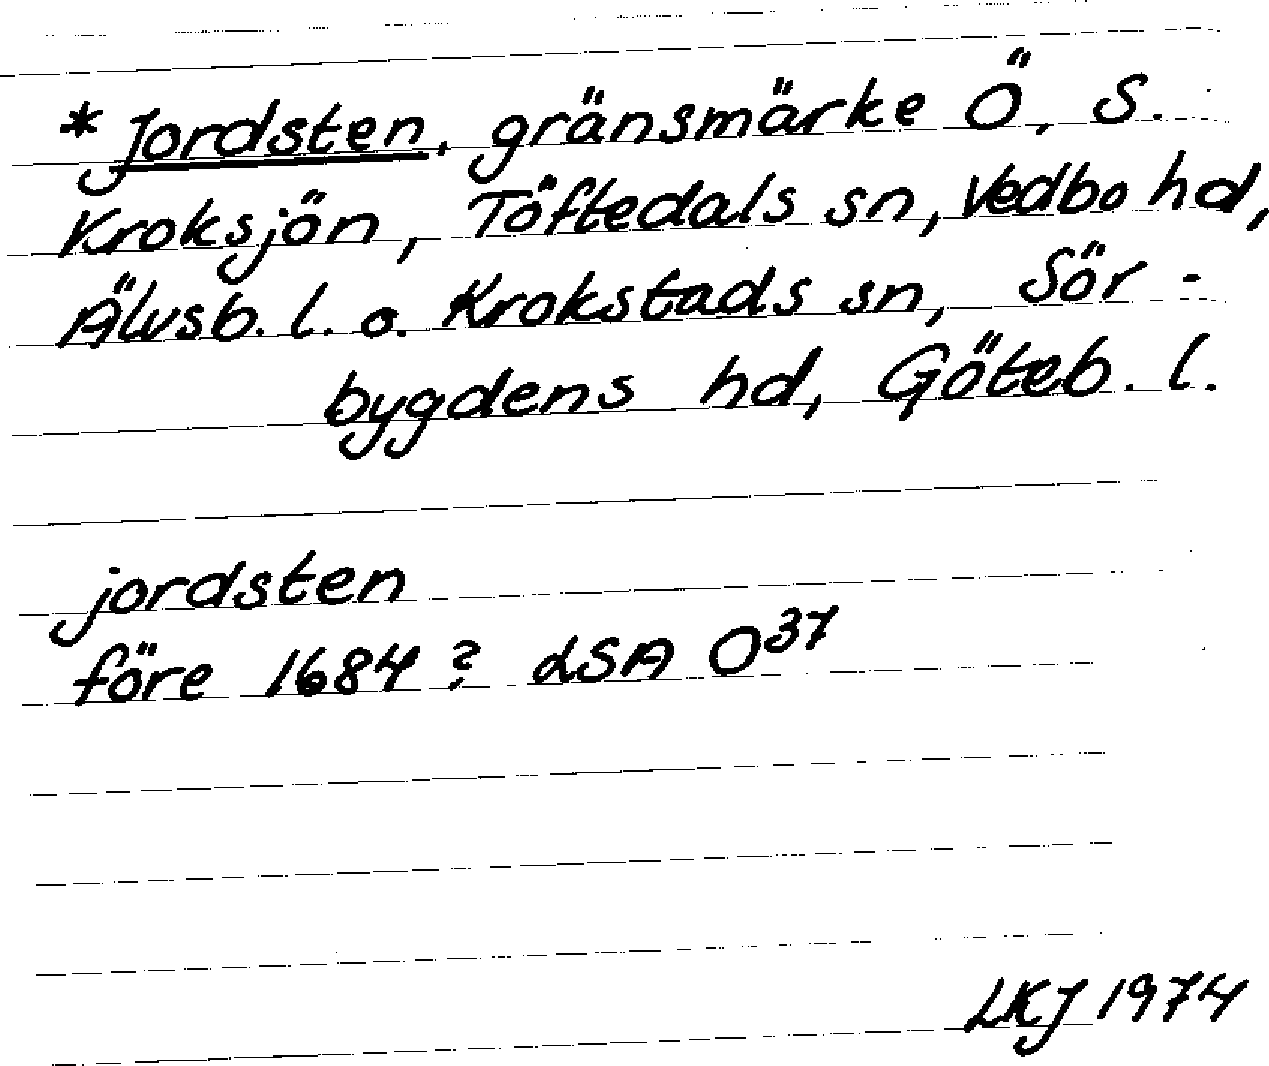 *Jordsten, gränsmärke Ö, S.
Kroksjön, Töftedals sn, Vedbo hd,
Älvsb. l. o. Krokstads sn, Sör-
bygdens hd, Göteb. l.
jordsten
före 1684? LSA O³⁷
LKJ 1974